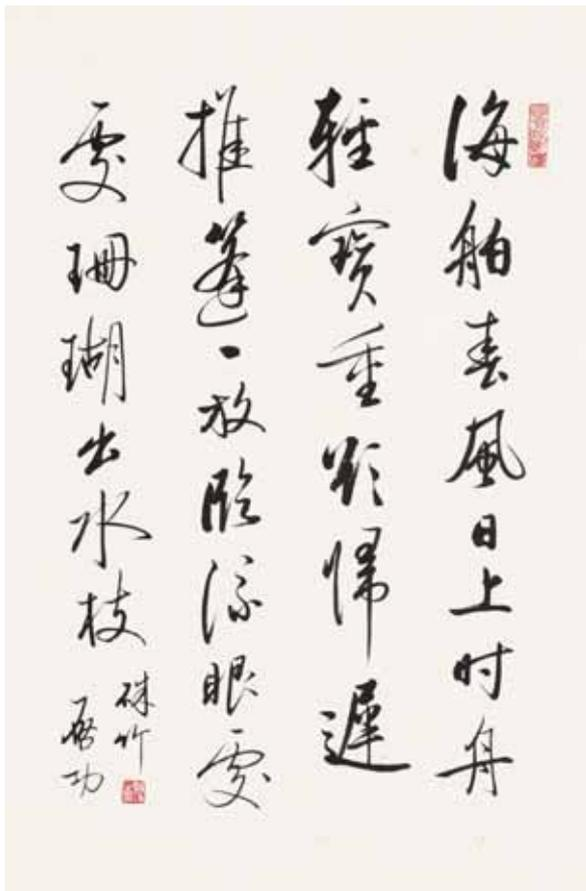 海舶春風日上时舟
輕寶重欲歸遲
推篷一放臨流眼處
處珊瑚出水枝
硃竹
啓功